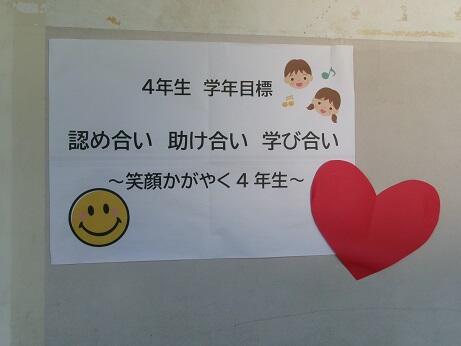 4年生 学年目標
認め合い 助け合い 学び合い
～笑顔かがやく4年生～